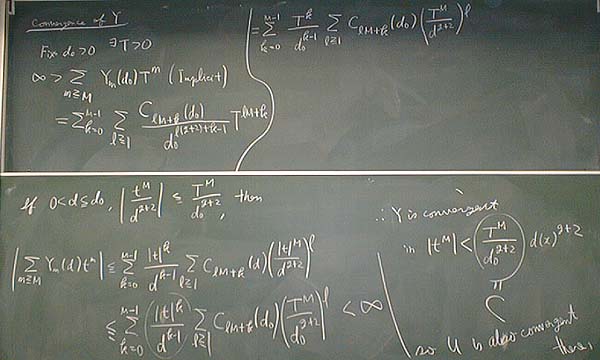 Convergence of Y
Fix d₀>0 ∃T>0
∞ > Σ_{m≥M} Y_m(d₀)T^m (Implicit)
= Σ_{k=0}^{M-1} Σ_{l≥1} C_{lM+k}(d₀) / d₀^{l(q+2)+k-1} T^{lM+k}
= Σ_{k=0}^{M-1} T^k/d₀^{k-1} Σ_{l≥1} C_{lM+k}(d₀) (T^M/d^{q+2})^l
If 0<d≤d₀, |t^M/d^{q+2}| ≤ T^M/d₀^{q+2}, then
|Σ_{m≥M} Y_m(d)t^m| ≤ Σ_{k=0}^{M-1} |t|^k/d^{k-1} Σ_{l≥1} C_{lM+k}(d) (|t|^M/d^{q+2})^l
≤ Σ_{k=0}^{M-1} (|t|^k/d^{k-1}) Σ_{l≥1} C_{lM+k}(d₀) (T^M/d₀^{q+2})^l < ∞
∴ Y is convergent
in |t^M| < (T^M/d₀^{q+2}) d(x)^{q+2}
=
C
so U is also convergent
there,